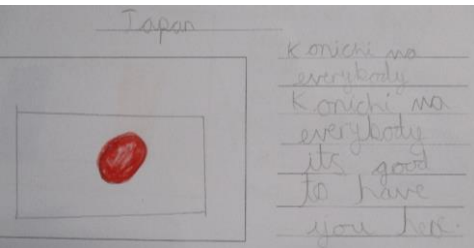 Japan
Konichi wa
everybody
Konichi wa
everybody
its good
to have
you here.